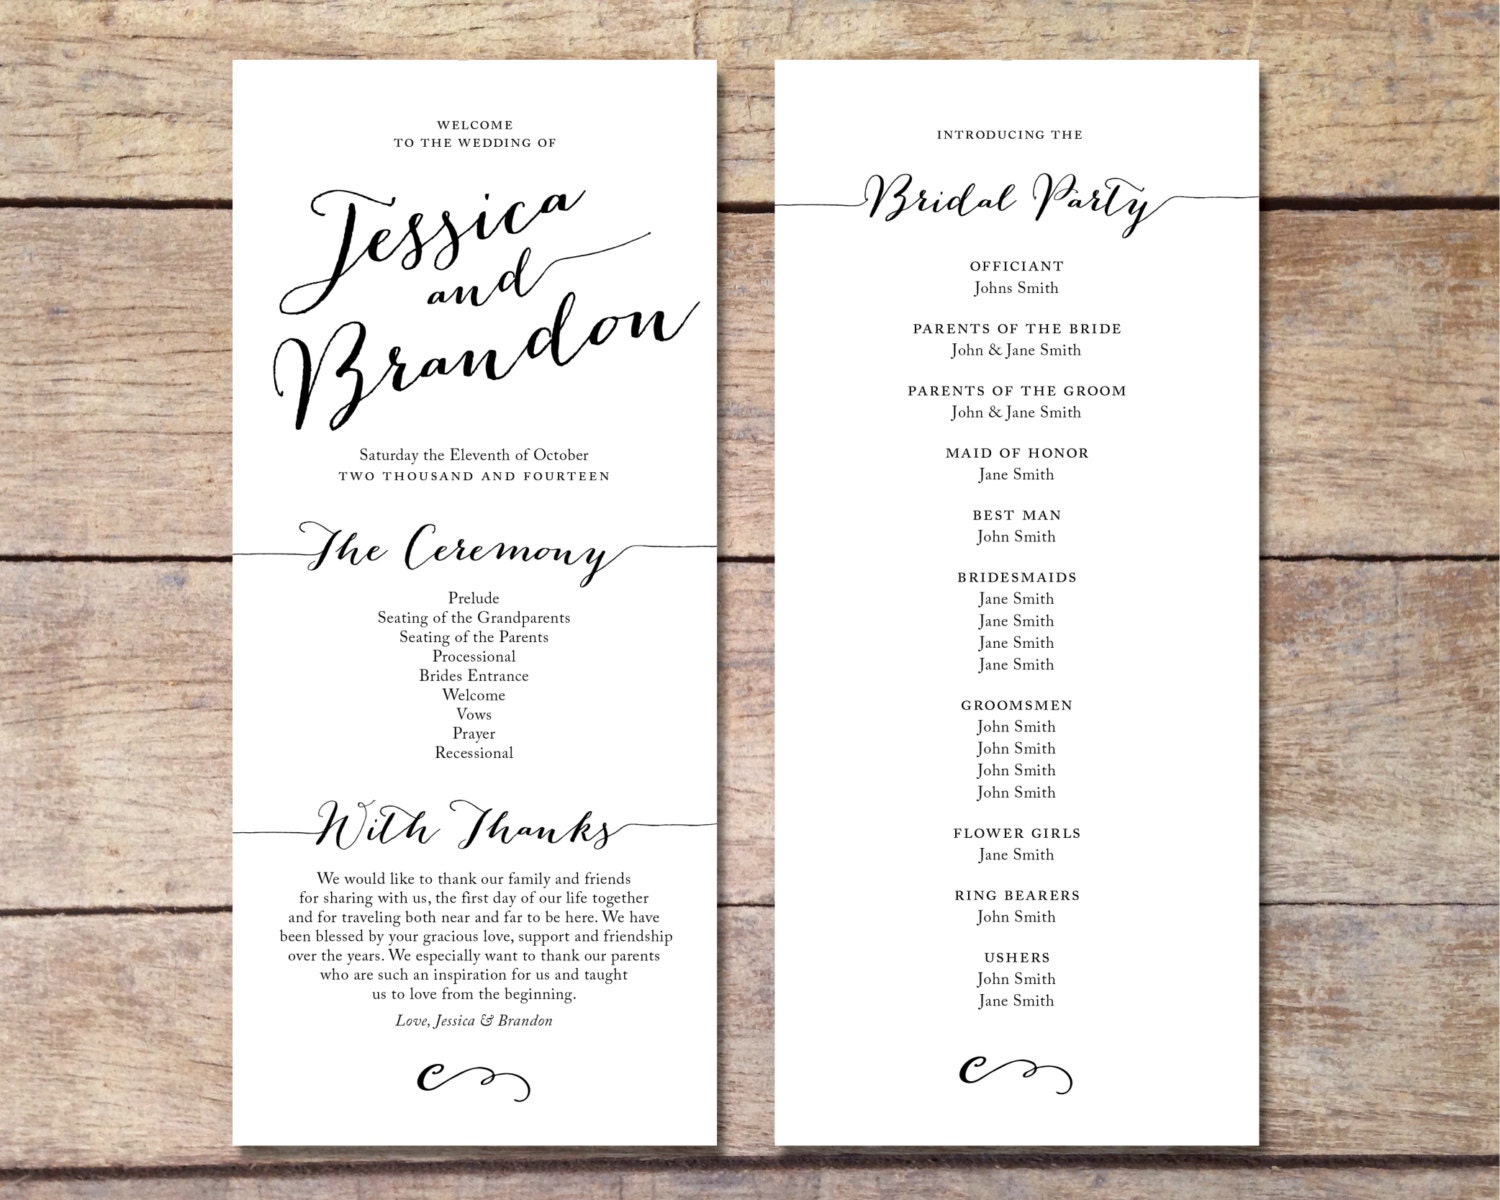 WELCOME
TO THE WEDDING OF
Jessica
and
Brandon
Saturday the Eleventh of October
TWO THOUSAND AND FOURTEEN
The Ceremony
Prelude
Seating of the Grandparents
Seating of the Parents
Processional
Brides Entrance
Welcome
Vows
Prayer
Recessional
With Thanks
We would like to thank our family and friends
for sharing with us, the first day of our life together
and for traveling both near and far to be here. We have
been blessed by your gracious love, support and friendship
over the years. We especially want to thank our parents
who are such an inspiration for us and taught
us to love from the beginning.
Love, Jessica & Brandon
INTRODUCING THE
Bridal Party
OFFICIANT
Johns Smith
PARENTS OF THE BRIDE
John & Jane Smith
PARENTS OF THE GROOM
John & Jane Smith
MAID OF HONOR
Jane Smith
BEST MAN
John Smith
BRIDESMAIDS
Jane Smith
Jane Smith
Jane Smith
Jane Smith
GROOMSMEN
John Smith
John Smith
John Smith
John Smith
FLOWER GIRLS
Jane Smith
RING BEARERS
John Smith
USHERS
John Smith
Jane Smith